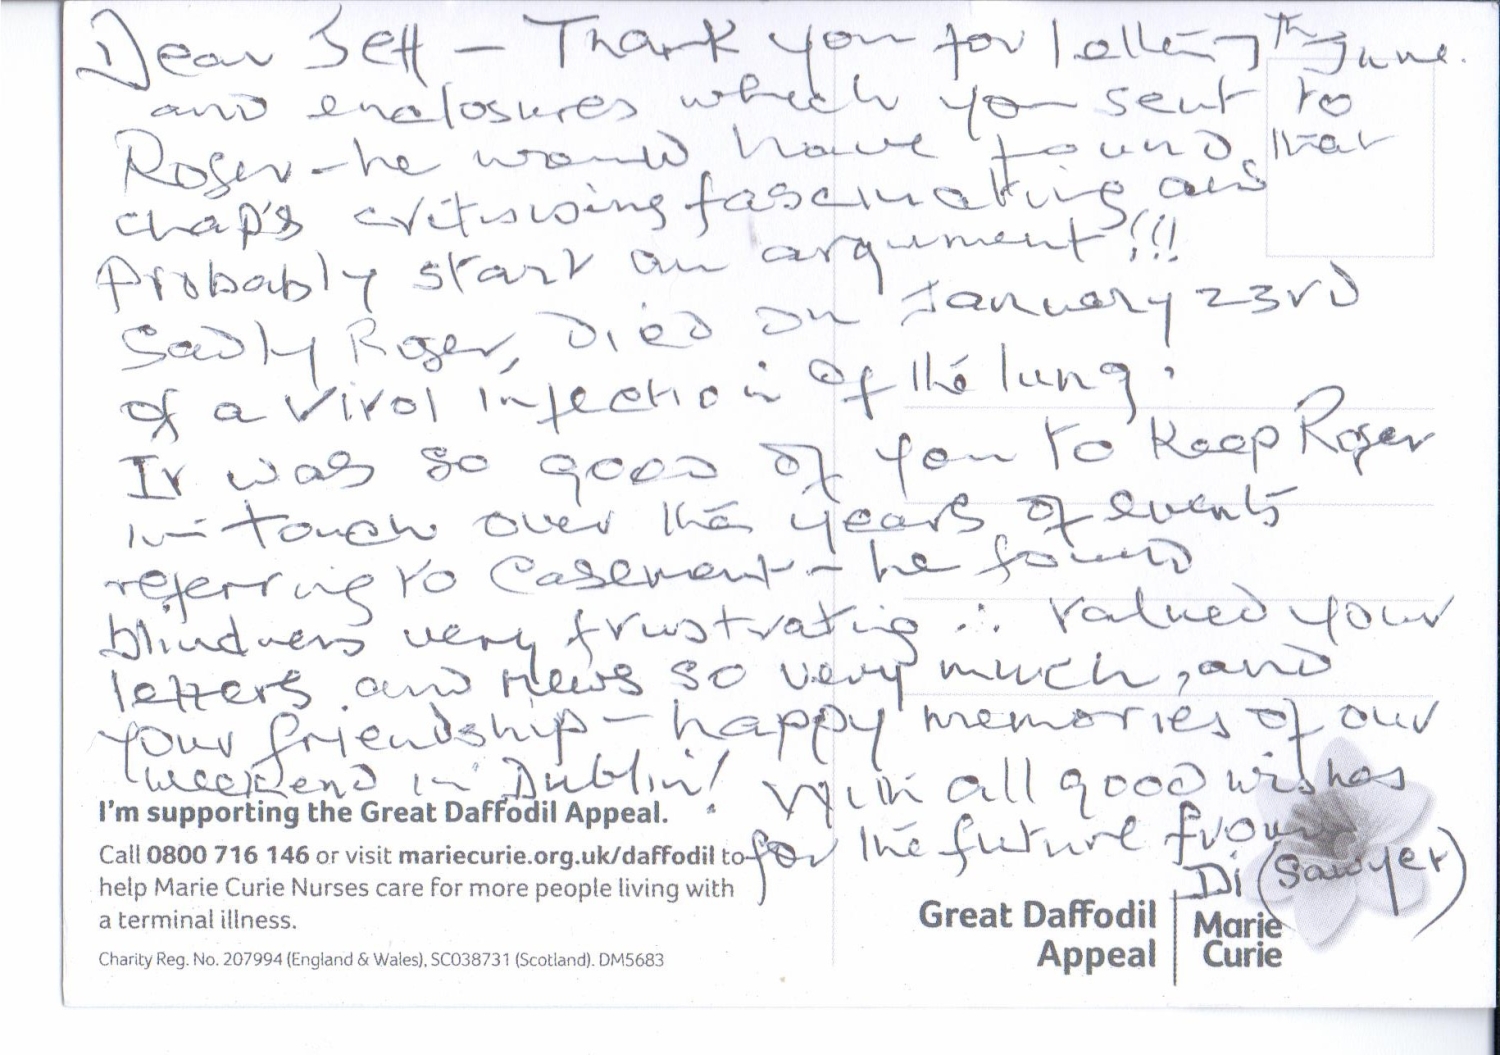 Dear Jeff - Thank you for letter 7th June.
and enclosures which you sent to
Roger - he would have found that
chap's critisising fascinating and
Probably start an argument!!!
Sadly Roger, Died on January 23rd
of a viral infection of the lung.
It was so good of you to keep Roger
in touch over the years of events
referring to Casement - he found
blindness very frustrating ∴ valued your
letters and news so very much, and
your friendship - happy memories of our
weekend in Dublin! With all good wishes
for the future from
Di (Sawyer)
I'm supporting the Great Daffodil Appeal.
Call 0800 716 146 or visit mariecurie.org.uk/daffodil to
help Marie Curie Nurses care for more people living with
a terminal illness.
Charity Reg. No. 207994 (England & Wales), SC038731 (Scotland). DM5683
Great Daffodil
Appeal
Marie
Curie